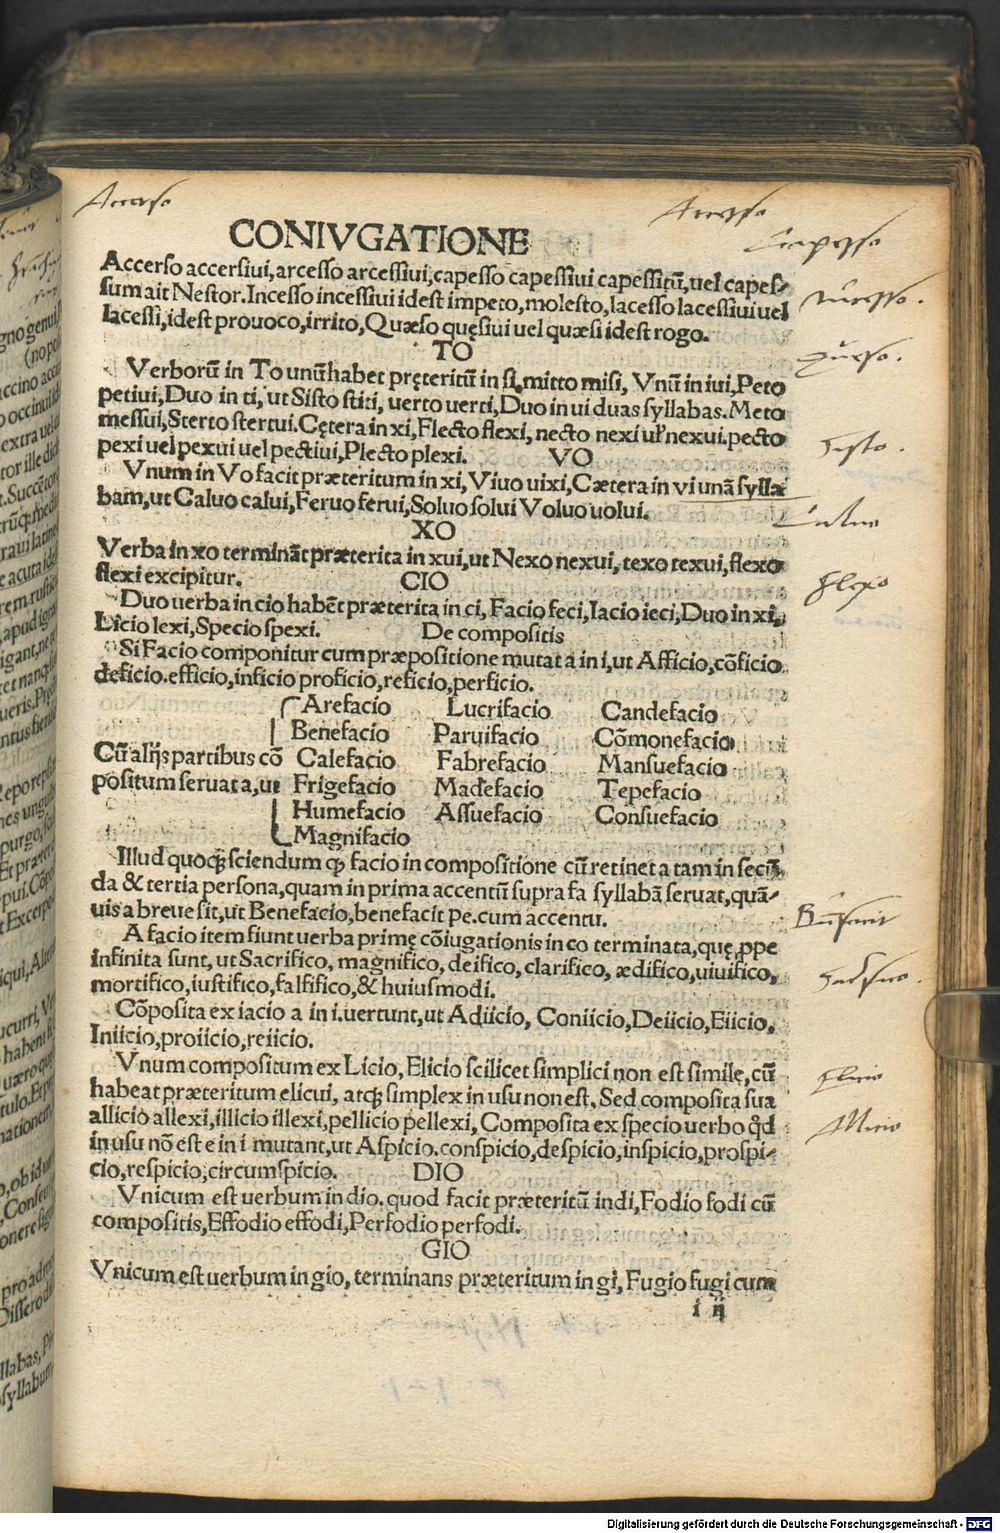 Accerso
Arcesso
CONIVGATIONE
Capesso
Accerso accersiui, arcesso arcessiui, capesso capessiui capessitū, uel capes-
sum ait Nestor. Incesso incessiui idest impeto, molesto, lacesso lacessiui uel
lacessi, idest prouoco, irrito, Quæso quęsiui uel quæsi idest rogo.
TO
Verborū in To unū habet pręteritū in si, mitto misi, Vnū in iui, Peto
petiui, Duo in ti, ut Sisto stiti, uerto uerti, Duo in ui duas syllabas. Meto
messui, Sterto stertui. Cętera in xi, Flecto flexi, necto nexi ul' nexui. pecto
pexi uel pexui uel pectiui, Plecto plexi. VO
Vnum in Vo facit præteritum in xi, Viuo uixi, Cætera in vi unā sylla
bam, ut Caluo calui, Feruo ferui, Soluo solui Voluo uolui.
XO
Verba in xo termināt præterita in xui, ut Nexo nexui, texo texui, flexo
flexi excipitur. CIO
Duo uerba in cio habēt præterita in ci, Facio feci, Iacio ieci, Duo in xi,
Licio lexi, Specio spexi. De compositis
Si Facio componitur cum præpositione mutat a in i, ut Afficio, cōficio
deficio. efficio, inficio proficio, reficio, perficio.
Arefacio Lucrifacio Candefacio
Benefacio Paruifacio Cōmonefacio
Cū alijs partibus cō Calefacio Fabrefacio Mansuefacio
positum seruat a, ut Frigefacio Madefacio Tepefacio
Humefacio Assuefacio Consuefacio
Magnifacio
Illud quoqꝫ sciendum ꝙ facio in compositione cū retinet a tam in secū
da & tertia persona, quam in prima accentū supra fa syllabā seruat, quā-
uis a breue sit, ut Benefacio, benefacit pe. cum accentu.
A facio item fiunt uerba primę cōiugationis in co terminata, quę ꝓpe
infinita sunt, ut Sacrifico, magnifico, deifico, clarifico, ædifico, uiuifico,
mortifico, iustifico, falsifico, & huiusmodi.
Cōposita ex iacio a in i. uertunt, ut Adiicio, Coniicio, Deiicio, Eiicio,
Iniicio, proiicio, reiicio.
Vnum compositum ex Licio, Elicio scilicet simplici non est simile, cū
habeat præteritum elicui, atqꝫ simplex in usu non est. Sed composita sua
allicio allexi, illicio illexi, pellicio pellexi, Composita ex specio uerbo qđ
in usu nō est e in i mutant, ut Aspicio. conspicio, despicio, inspicio, prospi-
cio, respicio, circumspicio. DIO
Vnicum est uerbum in dio. quod facit præteritū in di, Fodio fodi cū
compositis, Effodio effodi, Perfodio perfodi.
GIO
Vnicum est uerbum in gio, terminans præteritum in gi, Fugio fugi cum
i ij
Incesso.
Quæso.
Sisto.
Caluo
Flexo
Elicio
Allicio
Digitalisierung gefördert durch die Deutsche Forschungsgemeinschaft - DFG